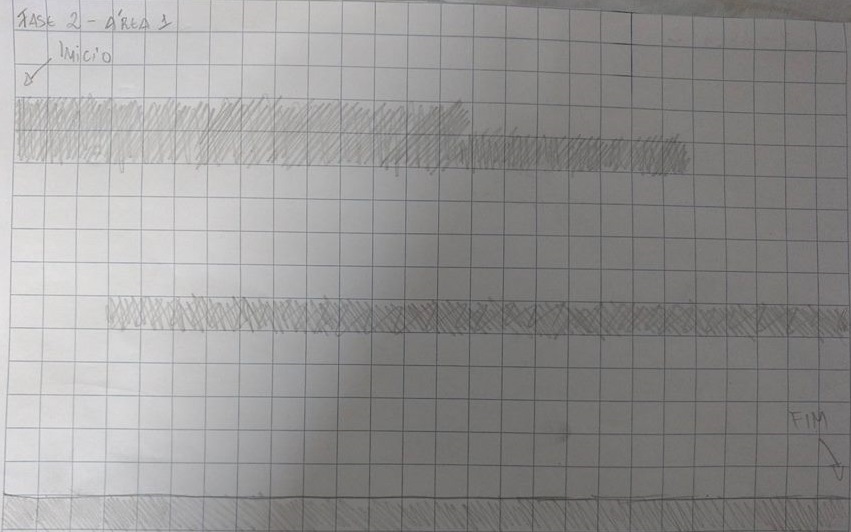 FASE 2 - ÁREA 1
INICIO
FIM